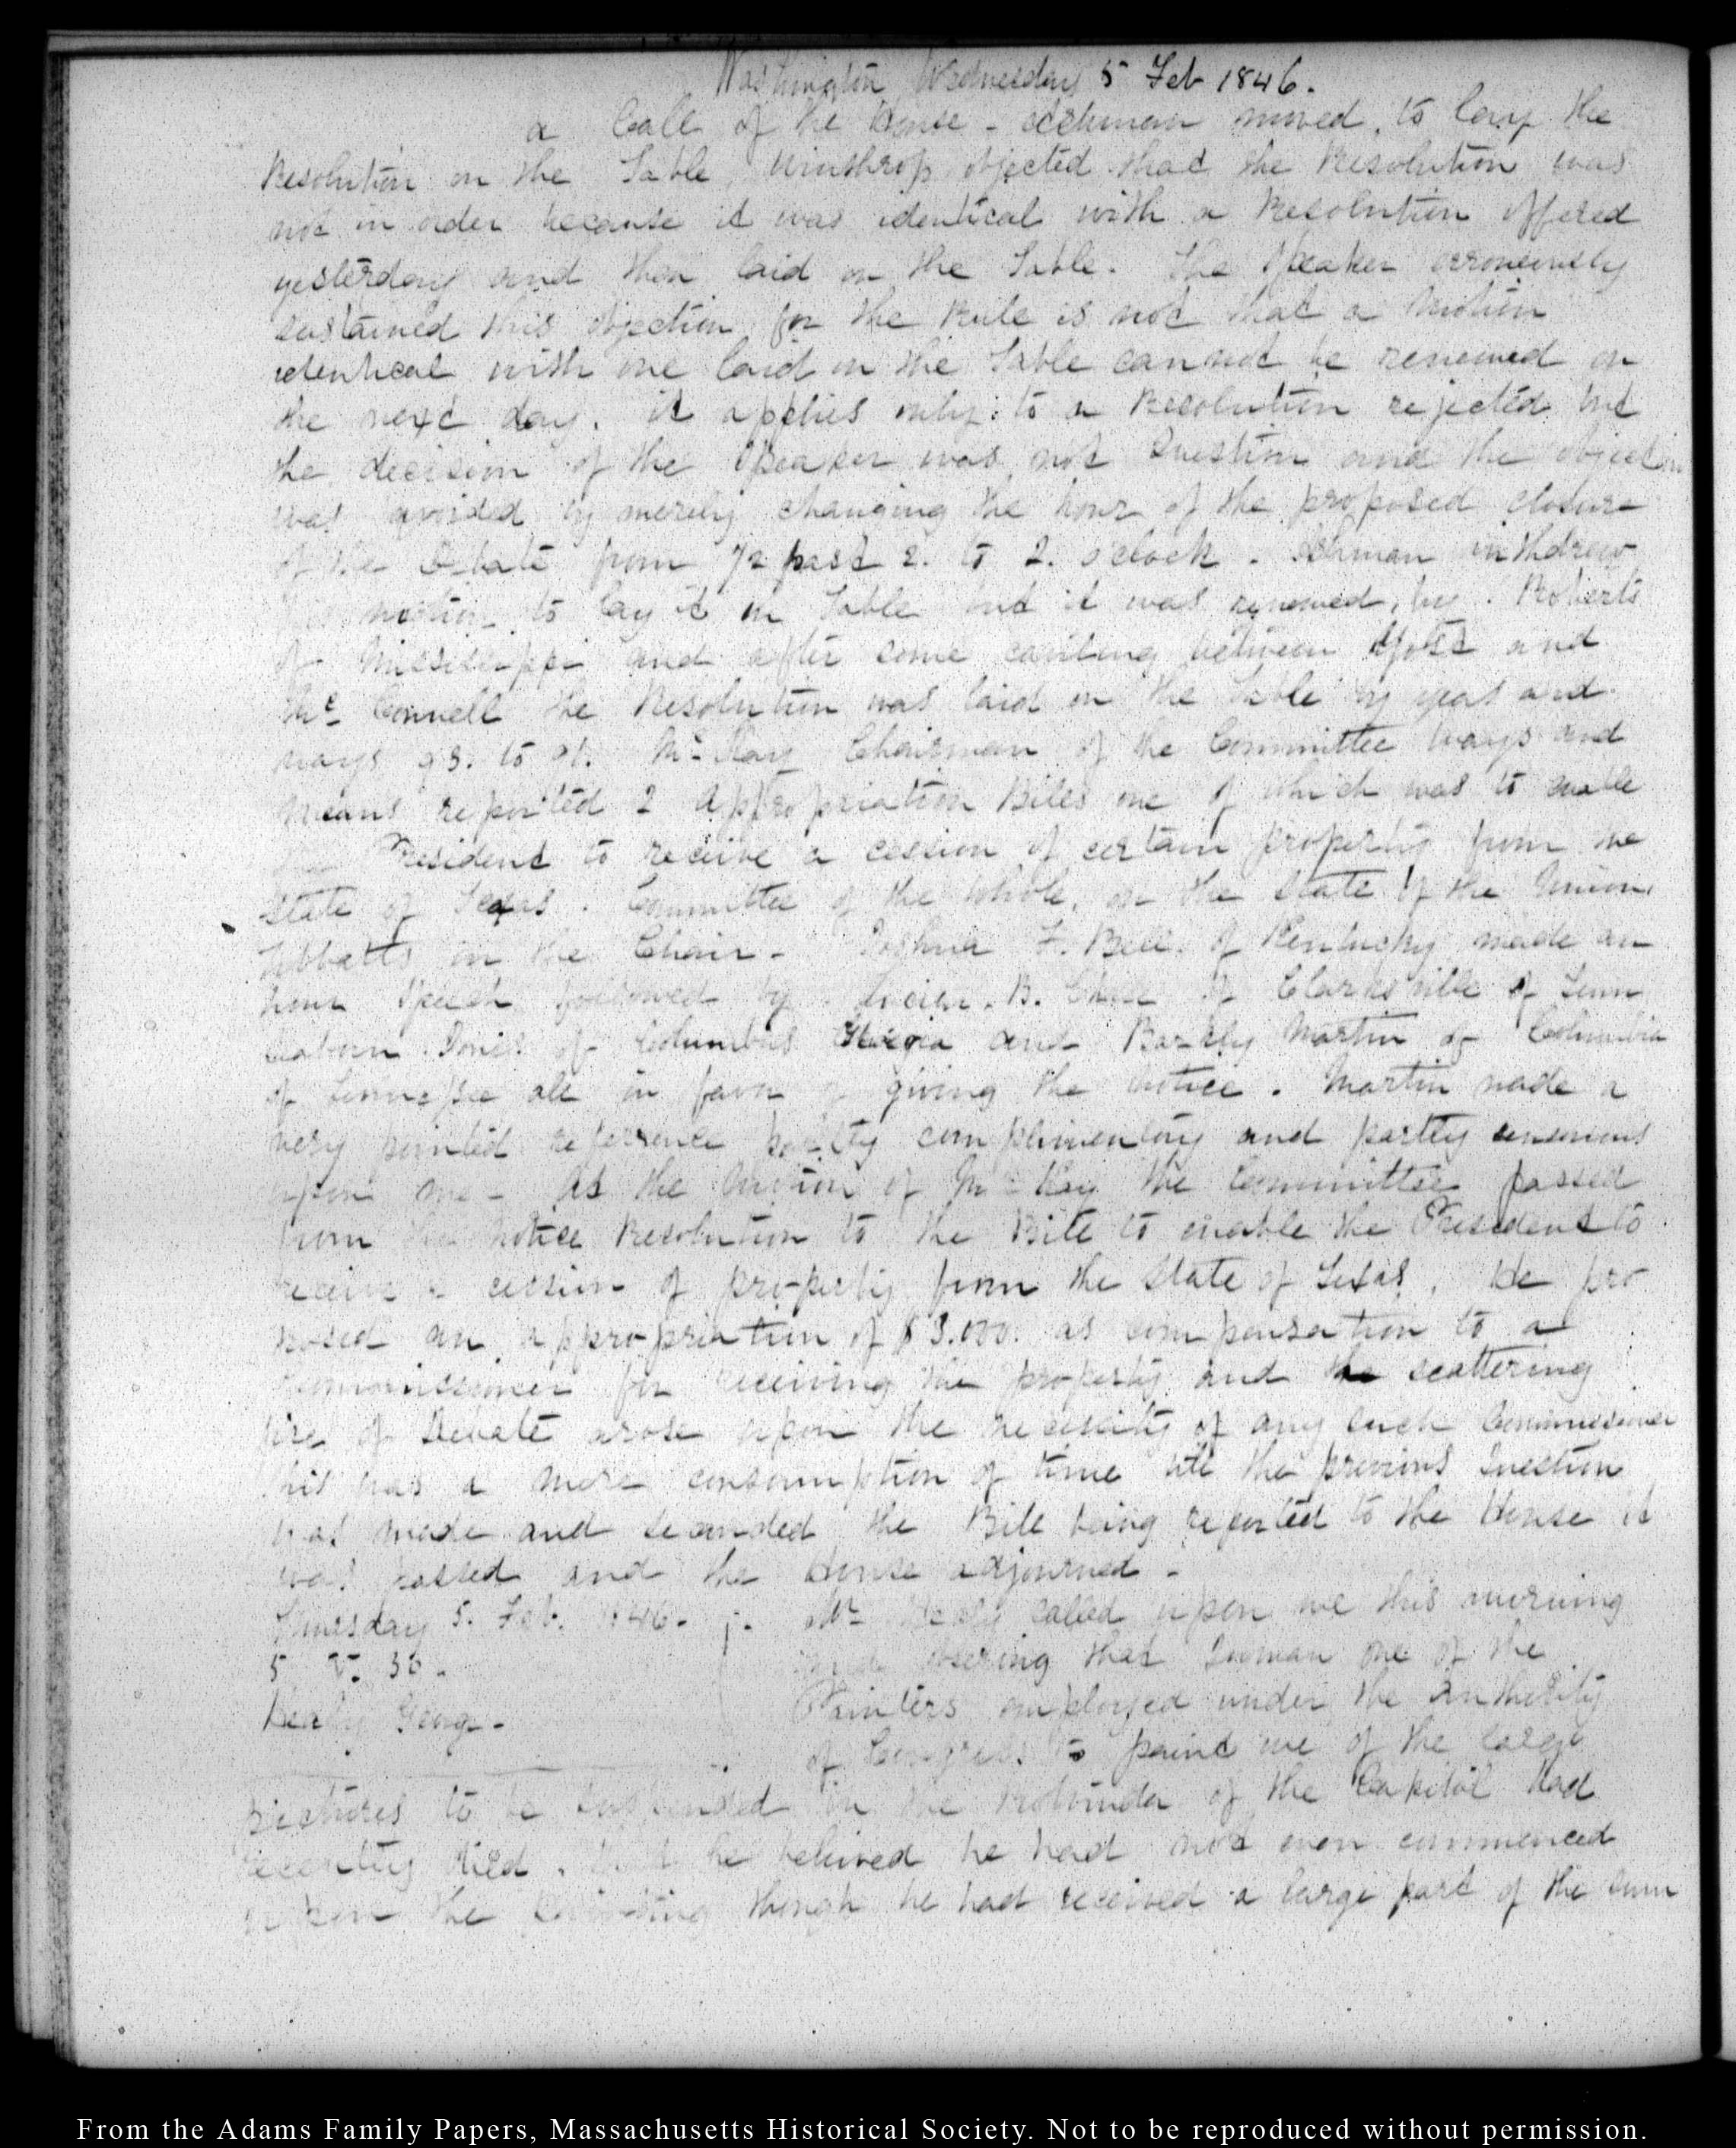 Washington Wednesday 5 Feb 1846.
a Call of the House - Ashmun moved, to lay the
Resolution on the Table, Winthrop objected that the Resolution was
not in order because it was identical with a Resolution offered
yesterday and then laid on the Table. The Speaker erroneously
sustained this objection, for the Rule is not that a Motion
identical with one laid on the Table cannot be renewed on
the next day. it applies only to a Resolution rejected but
the decision of the Speaker was not Question and the objection
was avoided by merely changing the hour of the proposed closure
of the Debate from 1/2 past 2. to 2. o'clock. Ashmun withdrew
his motion to lay it on Table but it was renewed, by. Roberts
of Mississippi and after some between and
Mc. Connell the Resolution was laid on the Table by yeas and
nays 93. to 91. Mc. Kay Chairman of the Committee Ways and
Means reported 2 Appropriation Bills one of which was to enable
President to receive a cession of certain property from the
State of Texas. Committee of the Whole, on the State of the Union,
Tibbatts in the Chair - Joshua F. Bell of Kentucky made an
hour Speech followed by Lucien. B. Chase of Clarksville of Tenn
Seaborn Jones of Columbus Georgia and Barkly Martin of Columbia
of Tennessee all in favor of giving the Notice. Martin made a
very pointed reference partly complimentary and partly
upon me - At the Motion of Mc Kay the Committee passed
from the Notice Resolution to the Bill to enable the President to
receive a cession of property from the State of Texas. He pro
posed an appropriation of $3.000. as compensation to a
Commissioner for receiving the property and the scattering
fire of Debate arose upon the necessity of any such Commissioner
this was a mere consumption of time till the previous Question
was made and seconded the Bill being reported to the House it
was passed and the House adjourned -
Thursday 5. Feb. 1846. Mr Healy called upon me this morning
5 V. 30.
observing that Inman one of the
Healy Georg -
Painters employed under the Authority
of Congress to paint one of the large
pictures to be suspended in the Rotunda of the Capitol had
recently died. that he believed he had not even commenced
upon the Painting though he had received a large part of the sum
From the Adams Family Papers, Massachusetts Historical Society. Not to be reproduced without permission.